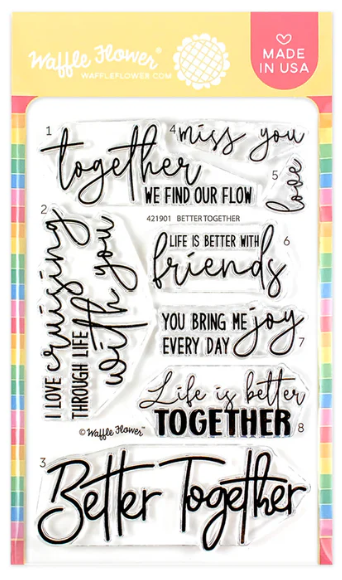 Waffle Flower®
WAFFLEFLOWER.COM
MADE
IN USA
1
together
WE FIND OUR FLOW
4
miss you
5
love
421901 BETTER TOGETHER
2
I LOVE cruising
THROUGH LIFE
with you
LIFE IS BETTER WITH
6
friends
YOU BRING ME joy
EVERY DAY
7
Life is better
TOGETHER
8
© Waffle Flower™
3
Better Together